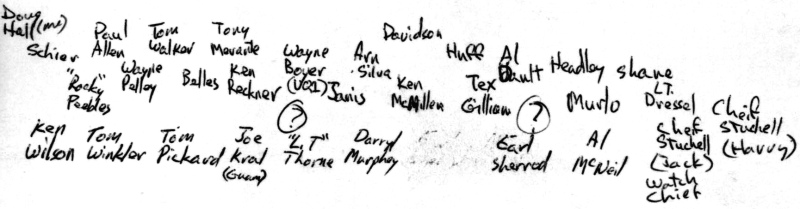 Doug Hall (me) Paul Allen Tom Walker Tony Davidson
Schier Wayne Boyer (UQ1) Arn Silva Huff Al Headley Shane
"Rocky" Peebles Wayne Pelley Belles Ken Reckner Janis Ken McMillen Tex Gilliam ? Murlo LT. Dressel Cheif Stuchell (Harry)
?
Ken Wilson Tom Winkler Tom Pickard Joe Kral (Guam) "L.T" Thorne Darryl Murphey Earl Sherrod Al McNeil Chef Stuchell (Jack) Watch Chief